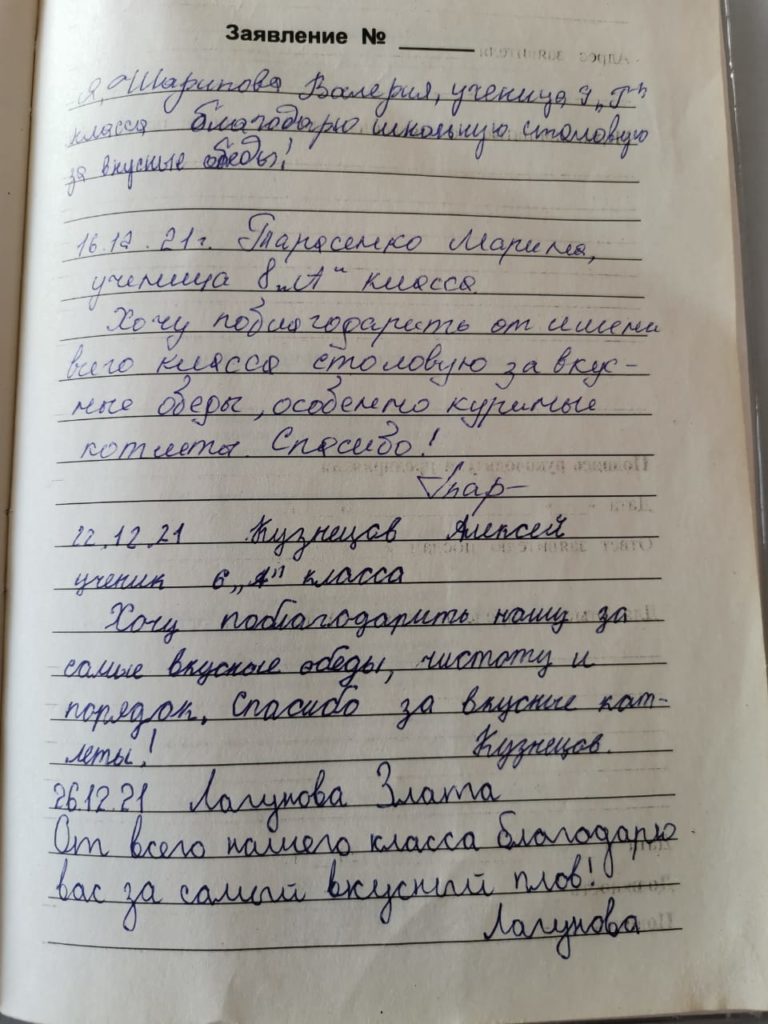 Заявление № ______
Я, Шарипова Валерия, ученица 9 „Г"
класса благодарю школьную столовую
за вкусные обеды!
16.12.21г. Тарасенко Марина,
ученица 8 „А" класса.
Хочу поблагодарить от имени
всего класса столовую за вкус-
ные обеды, особенно куриные
котлеты. Спасибо!
22.12.21 Кузнецов Алексей
ученик 6 „А" класса
Хочу поблагодарить нашу за
самые вкусные обеды, чистоту и
порядок. Спасибо за вкусные кат-
леты! Кузнецов.
26.12.21 Лагунова Злата
От всего нашего класса благодарю
вас за самый вкусный плов!
Лагунова